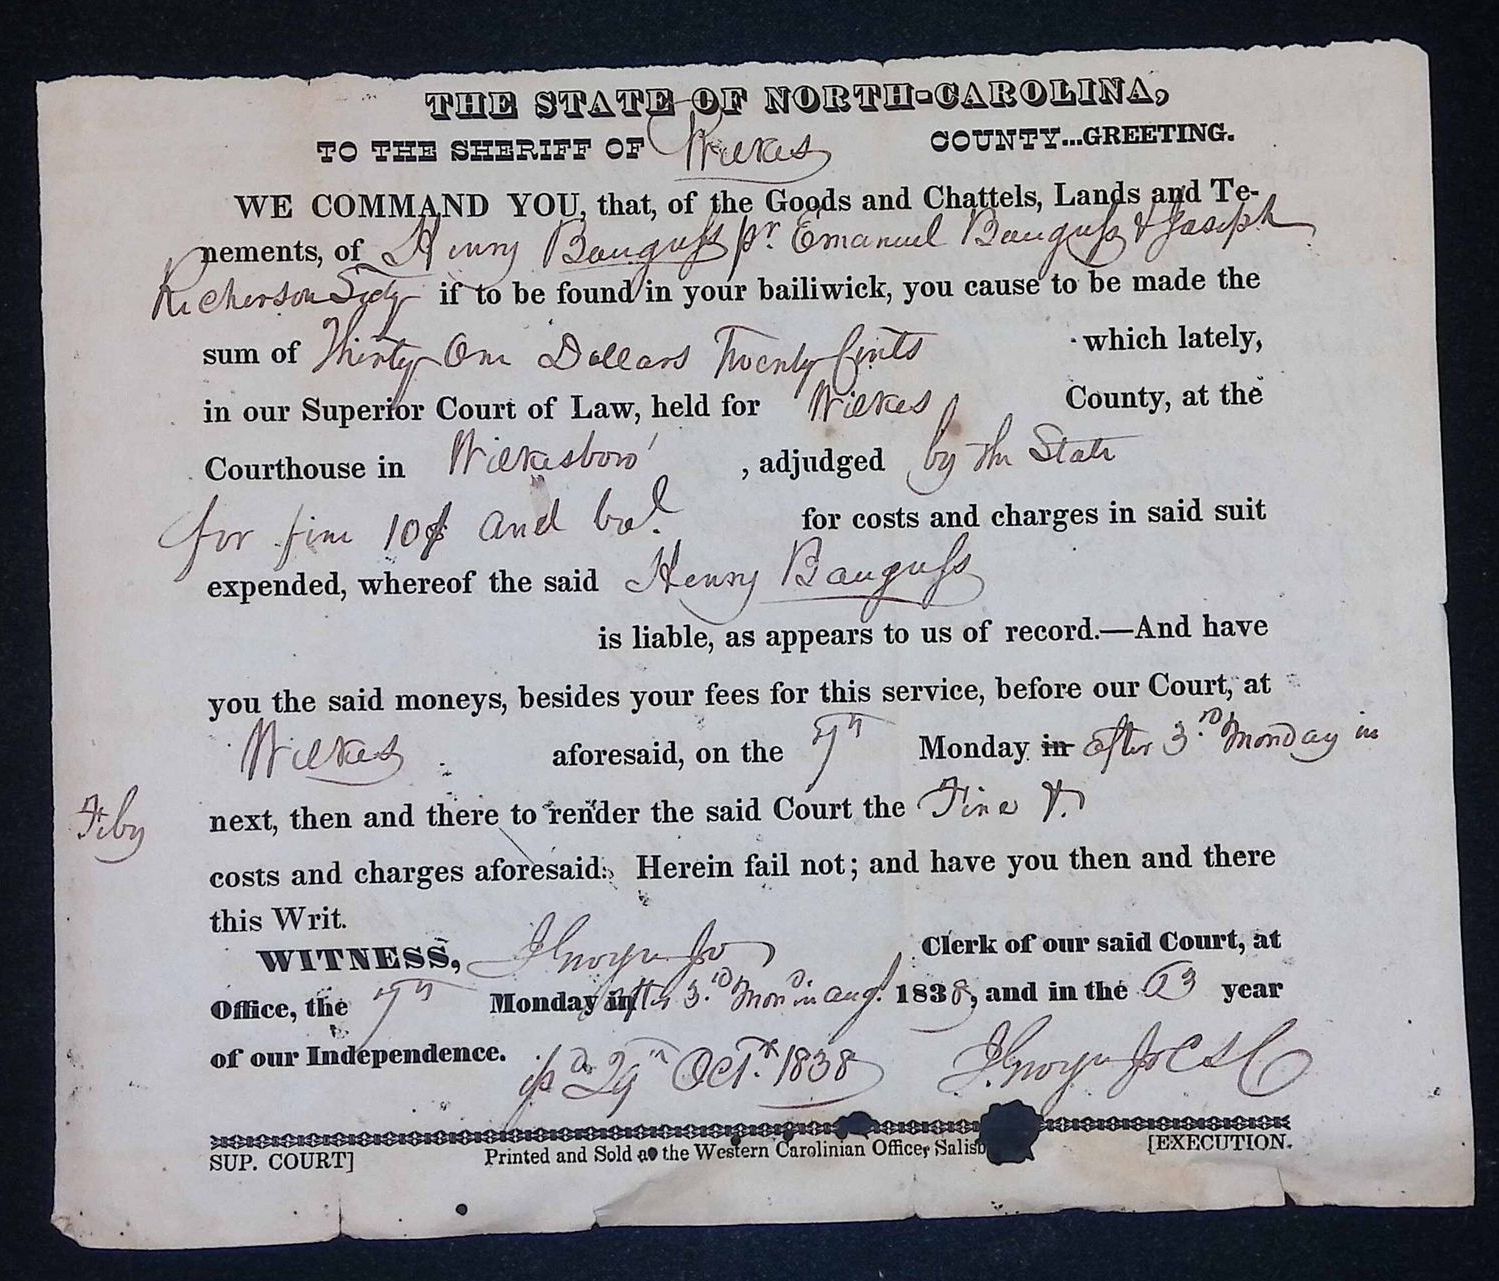 THE STATE OF NORTH-CAROLINA,
TO THE SHERIFF OF Wilkes COUNTY...GREETING.
WE COMMAND YOU, that, of the Goods and Chattels, Lands and Te-
nements, of Henry Bauguss pr. Emanuel Bauguss & Joseph
Richerson Secty if to be found in your bailiwick, you cause to be made the
sum of Thirty One Dollars Twenty Cents which lately,
in our Superior Court of Law, held for Wilkes County, at the
Courthouse in Wilkesboro' , adjudged by the State
for fine 10$ and bal. for costs and charges in said suit
expended, whereof the said Henry Bauguss
is liable, as appears to us of record.—And have
you the said moneys, besides your fees for this service, before our Court, at
Wilkes aforesaid, on the 7th Monday in after 3rd Monday in
Feby next, then and there to render the said Court the Fine &
costs and charges aforesaid: Herein fail not; and have you then and there
this Writ.
WITNESS, J Gwyn Jr Clerk of our said Court, at
Office, the 7th Monday in after 3rd Mond in Augt. 1838, and in the 63 year
of our Independence. isd 29th Oct. 1838 J Gwyn Jr CSC
SUP. COURT] Printed and Sold at the Western Carolinian Office, Salisb [EXECUTION.